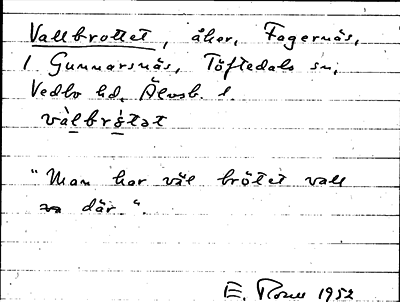 Vallbrottet, åker, Fagernäs,
1 Gunnarsnäs, Töftedals sn,
Vedbo hd, Älvsb. l.
vàlbrö̀tət
"Man har väl brötet vall
där.".
E. Rosell 1952